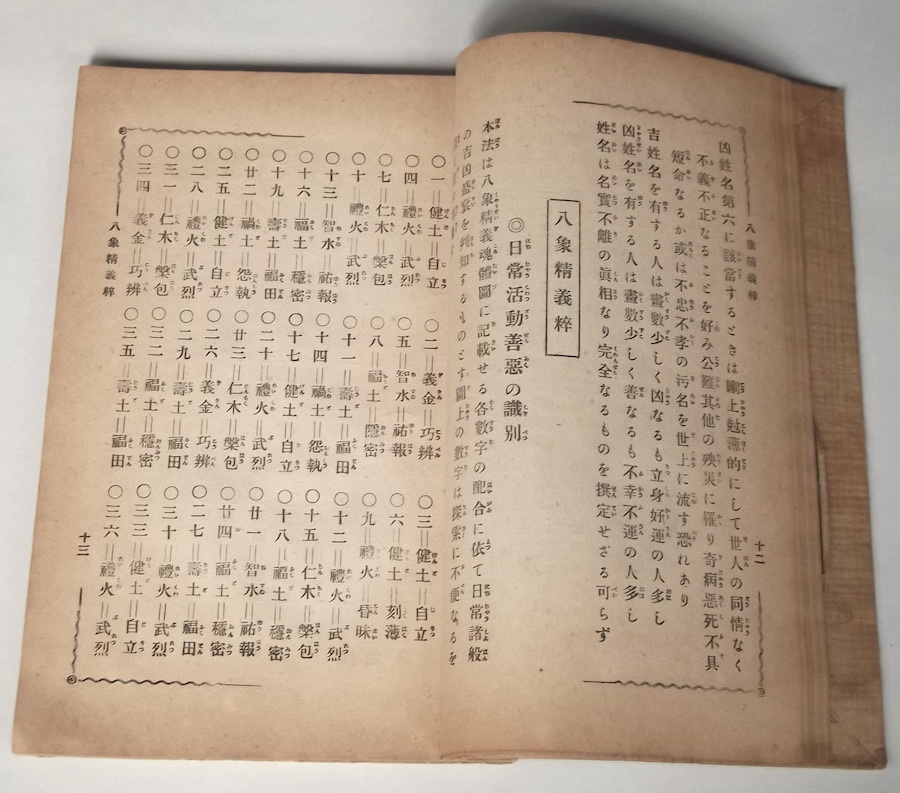 八象精義粹
十二
凶姓名第六に該當するときは剛上尅薄的にして世人の同情なく
不義不正なることを好み公難其他の殃災に罹り奇病惡死不具
短命なるか或は不忠不孝の汚名を世上に流す恐れあり
吉姓名を有する人は畫數少しく凶なるも立身好運の人多し
凶姓名を有する人は畫數少しく善なるも不幸不運の人多し
姓名は名實不離の眞相なり完全なるものを撰定せざる可らず
八象精義粹
◎日常活動善惡の識別
本法は八象精義魂體圖に記載せる各數字の配合に依て日常諸般
の吉凶盛衰を判知するものとす圖上の數字は探索に不便なるを
〇一＝健土＝自立
〇二＝義金＝巧辨
〇三＝健土＝自立
〇四＝禮火＝武烈
〇五＝智水＝祐報
〇六＝健土＝刻薄
〇七＝仁木＝槃包
〇八＝福土＝隱密
〇九＝禮火＝昧
〇十＝禮火＝武烈
〇十一＝壽土＝福田
〇十二＝禮火＝武烈
〇十三＝智水＝祐報
〇十四＝禍土＝怨執
〇十五＝仁木＝槃包
〇十六＝福土＝穩密
〇十七＝健土＝自立
〇十八＝福土＝穩密
〇十九＝壽土＝福田
〇二十＝禮火＝武烈
〇廿一＝智水＝祐報
〇廿二＝禍土＝怨執
〇廿三＝仁木＝槃包
〇廿四＝福土＝穩密
〇二五＝健土＝自立
〇二六＝義金＝巧辨
〇二七＝壽土＝福田
〇二八＝禮火＝武烈
〇二九＝壽土＝福田
〇三十＝禮火＝武烈
〇三一＝仁木＝槃包
〇三二＝福土＝穩密
〇三三＝健土＝自立
〇三四＝義金＝巧辨
〇三五＝壽土＝福田
〇三六＝禮火＝武烈
八象精義粹
十三